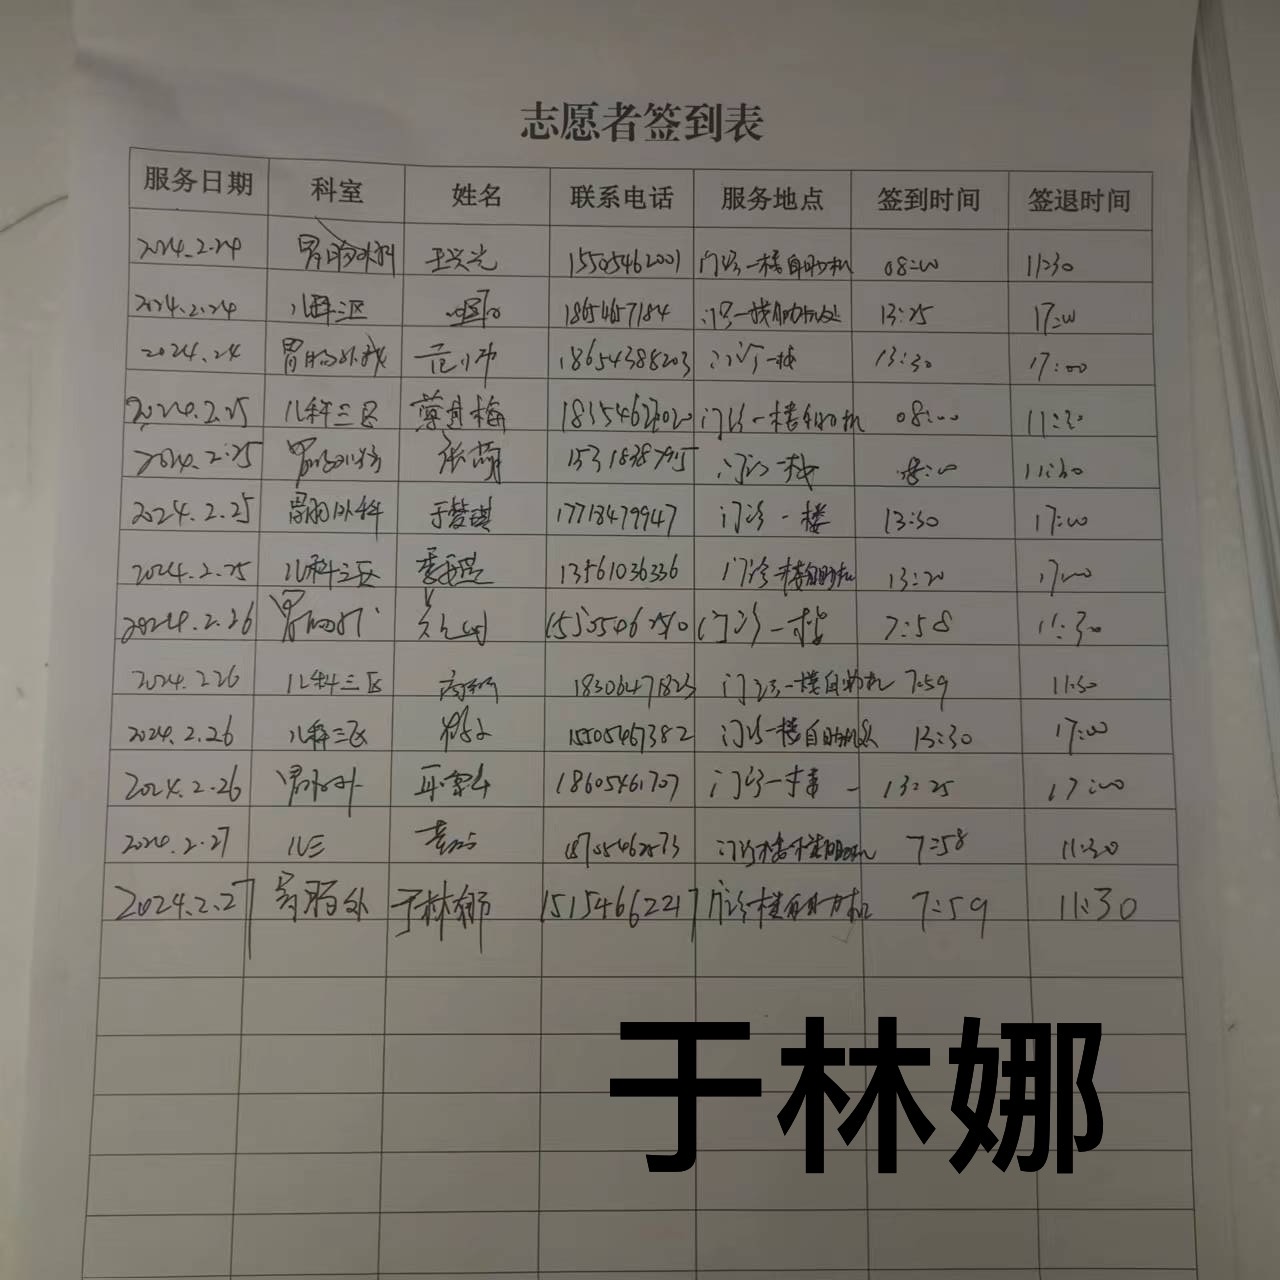 志愿者签到表
服务日期 科室 姓名 联系电话 服务地点 签到时间 签退时间
2024.2.24 胃肠外科 王兴光 15505462001 门诊一楼自助机 08:00 11:30
2024.2.24 儿科三区 18654657184 门诊一楼自助机处 13:25 17:00
2024.24 胃肠外科 18654388203 门诊一楼 13:30 17:00
2024.2.25 儿科三区 薄其梅 门诊一楼自助机 08:00 11:30
2024.2.25 胃肠外科 张萌 15318387915 门诊一楼 8:00 11:30
2024.2.25 胃肠外科 于梦琪 17718479947 门诊一楼 13:30 17:00
2024.2.25 儿科三区 13561036336 门诊一楼自助机 13:20 17:00
2024.2.26 胃肠外 门诊一楼 7:58 11:30
2024.2.26 儿科三区 18306471823 门诊一楼自助机 7:59 11:30
2024.2.26 儿科三区 15505467382 门诊一楼自助机处 13:30 17:00
2024.2.26 胃肠外 18605461707 门诊一楼 13:25 17:00
2024.2.27 儿三 7:58 11:30
2024.2.27 胃肠外 于林娜 15154662217 门诊一楼自助机 7:59 11:30
于林娜